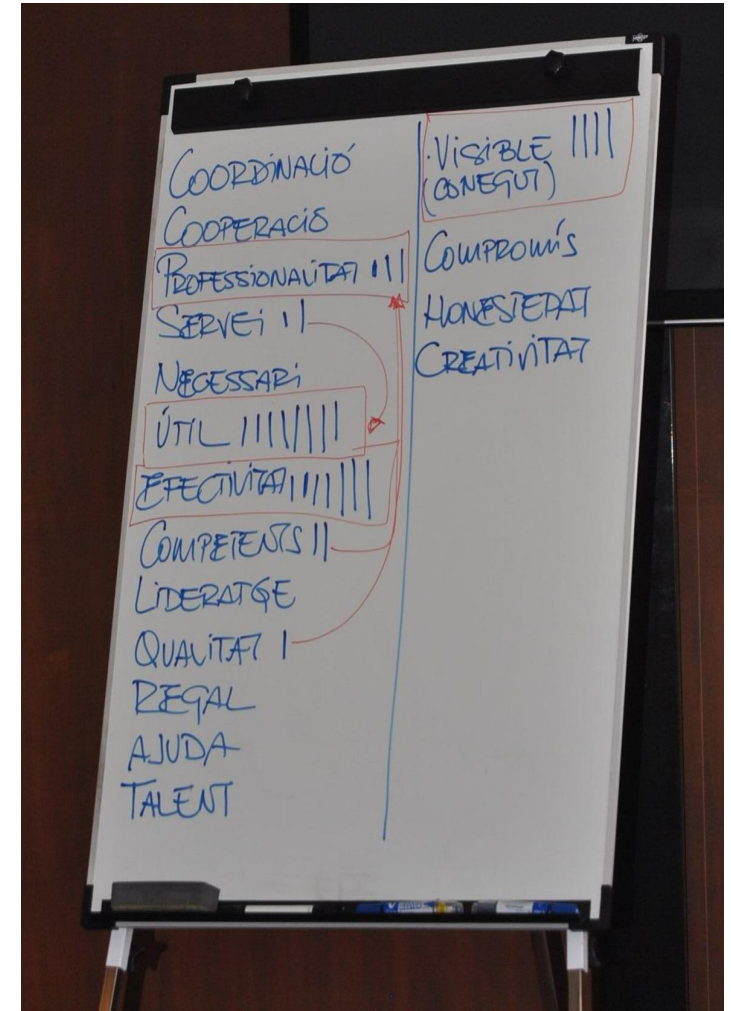 COORDINACIÓ
COOPERACIÓ
PROFESSIONALITAT III
SERVEI II
NECESSARI
ÚTIL IIIIIIII
EFECTIVITAT IIIIIII
COMPETENTS II
LIDERATGE
QUALITAT I
REGAL
AJUDA
TALENT
·VISIBLE IIII
(CONEGUT)
COMPROMÍS
HONESTEDAT
CREATIVITAT